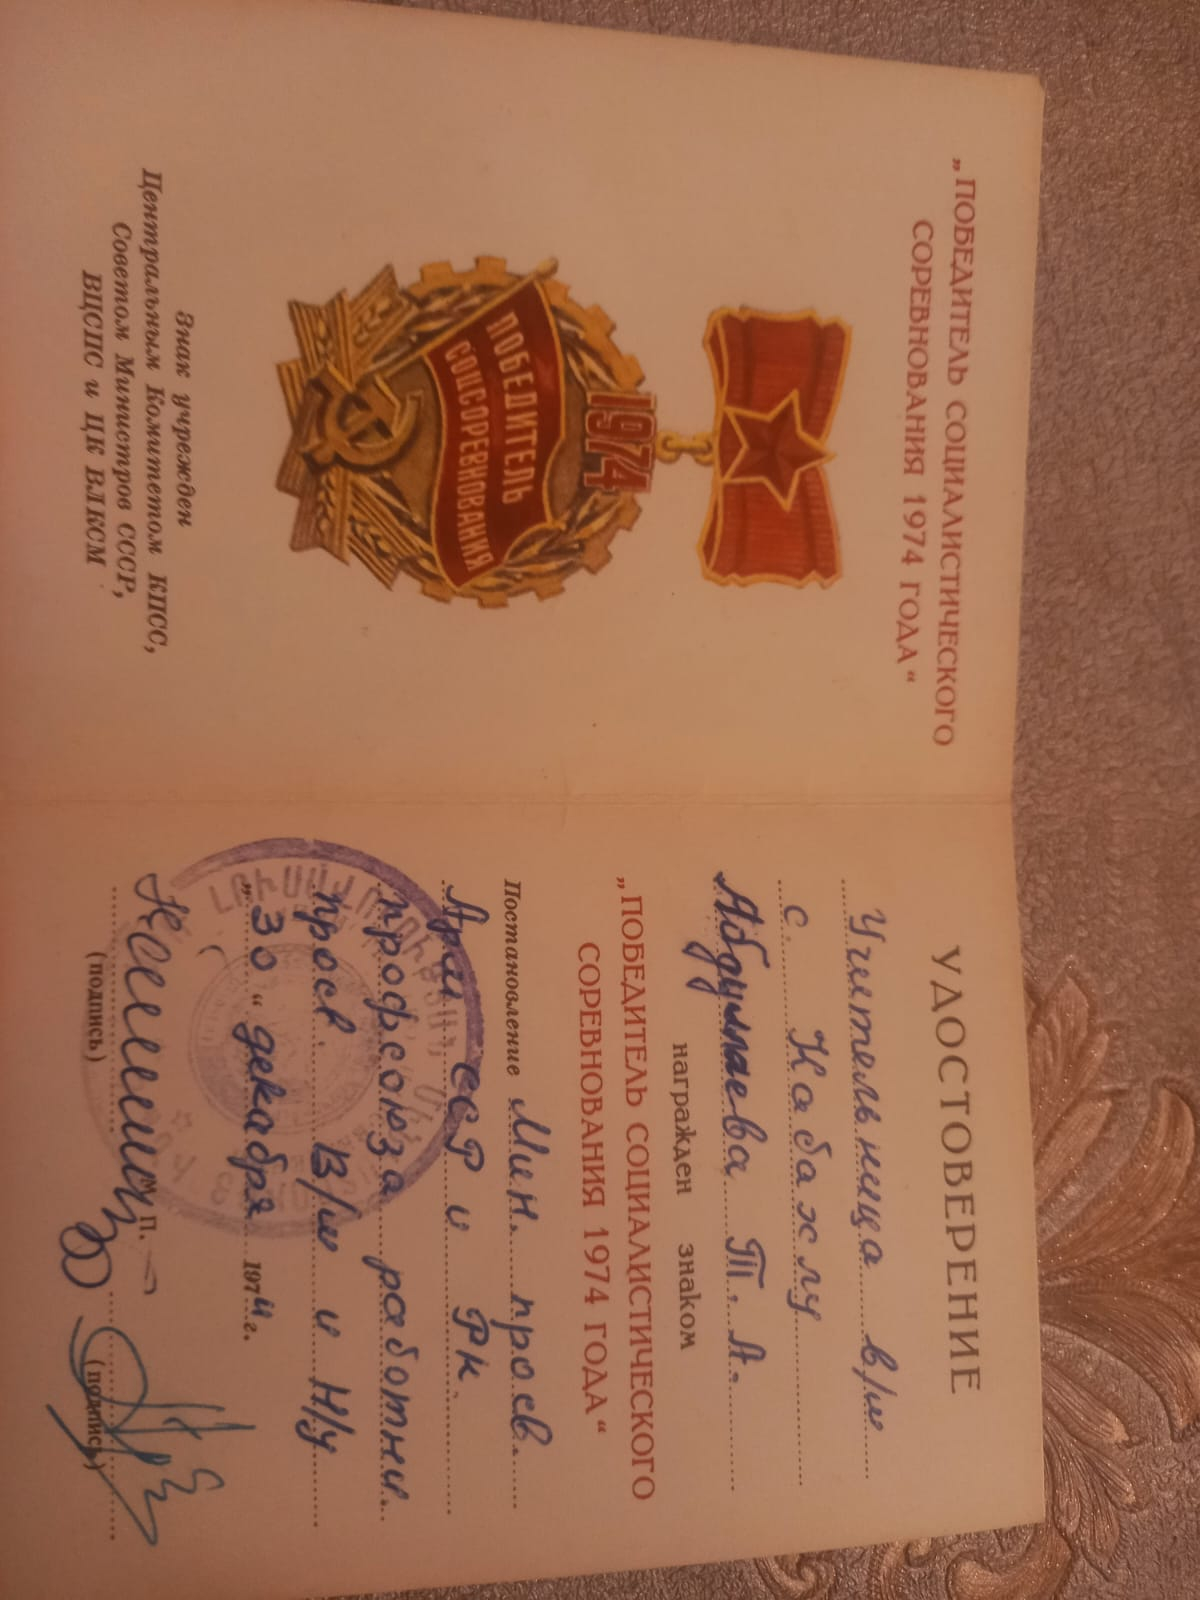 „ПОБЕДИТЕЛЬ СОЦИАЛИСТИЧЕСКОГО
СОРЕВНОВАНИЯ 1974 ГОДА“
1974
ПОБЕДИТЕЛЬ
СОЦСОРЕВНОВАНИЯ
Знак учрежден
Центральным Комитетом КПСС,
Советом Министров СССР,
ВЦСПС и ЦК ВЛКСМ
УДОСТОВЕРЕНИЕ
Учительница в/ш
с. Кабахлу
Абдуллаева Т. А.
награжден знаком
„ПОБЕДИТЕЛЬ СОЦИАЛИСТИЧЕСКОГО
СОРЕВНОВАНИЯ 1974 ГОДА“
Постановление Мин. просв.
Арм ССР и РК
профсоюза работни.
просв. В/ш и Н/у
„30“ декабря 1974 г.
П.
(подпись) (подпись)